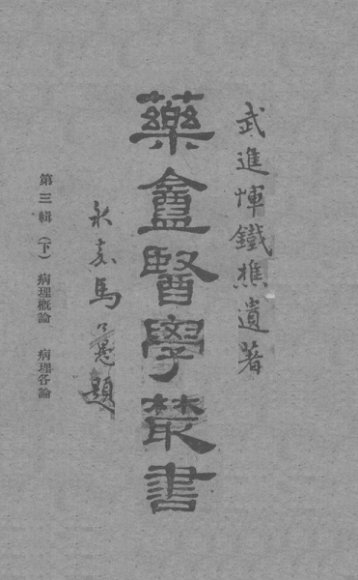 武進惲鐵樵遺著
藥盦醫學叢書
永嘉馬公愚題
第三輯(下) 病理概論 病理各論